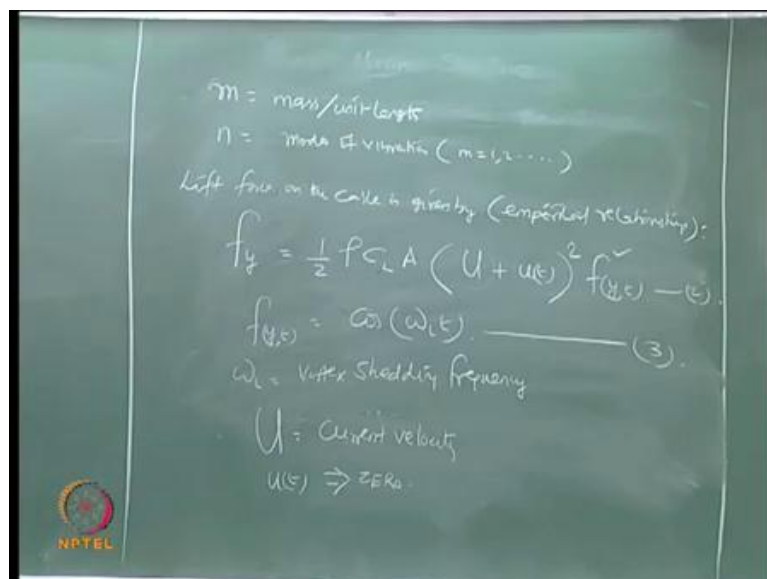 m = mass/unit length
n = modes of vibration (m=1,2.....)
Lift force on the cable is given by (empirical relationship):
f_y = 1/2 ρ C_L A (U + u(t))² f(y,t) — (2).
f(y,t) = Cos (ω_L t). — (3).
ω_L = Vortex Shedding frequency
U = Current velocity
u(t) ⇒ ZERO.
NPTEL